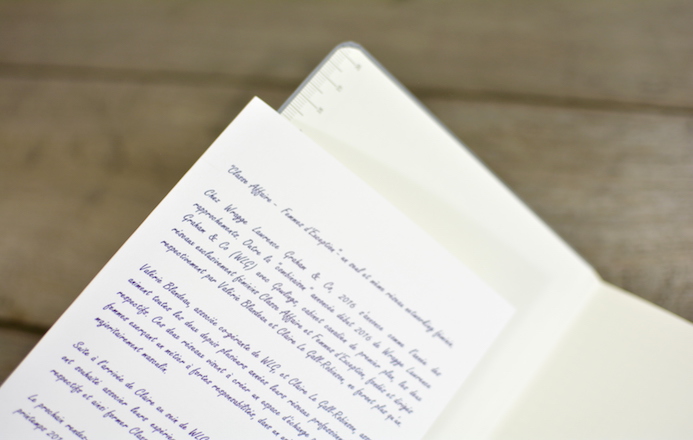 "Classe Affaire - Femmes d'Exception" un seul et même réseau networking féminin
Chez Wragge Lawrence Graham & Co, 2016 s'annonce comme l'année des
rapprochements. Outre la "combinaison" annoncée début 2016 de Wragge Lawrence
Graham & Co (WLG) avec Gowlings, cabinet canadien de premier plan, les deux
réseaux exclusivement féminins Classe Affaire et Femmes d'Exception fondés et dirigés
respectivement par Valérie Blandeau et Claire Le Gall-Robinson, ne forment plus qu'un.
Valérie Blandeau, associée co-gérante de WLG, et Claire Le Gall-Robinson, associée
animent toutes les deux depuis plusieurs années leurs réseaux professionnels
respectifs. Ces deux réseaux visent à créer un espace d'échange
femmes exerçant un métier à fortes responsabilités, dans un
majoritairement masculin.
Suite à l'arrivée de Claire au sein de WLG
ont souhaité associer leurs
respectifs et ainsi former Classe
La prochaine
printemps 201